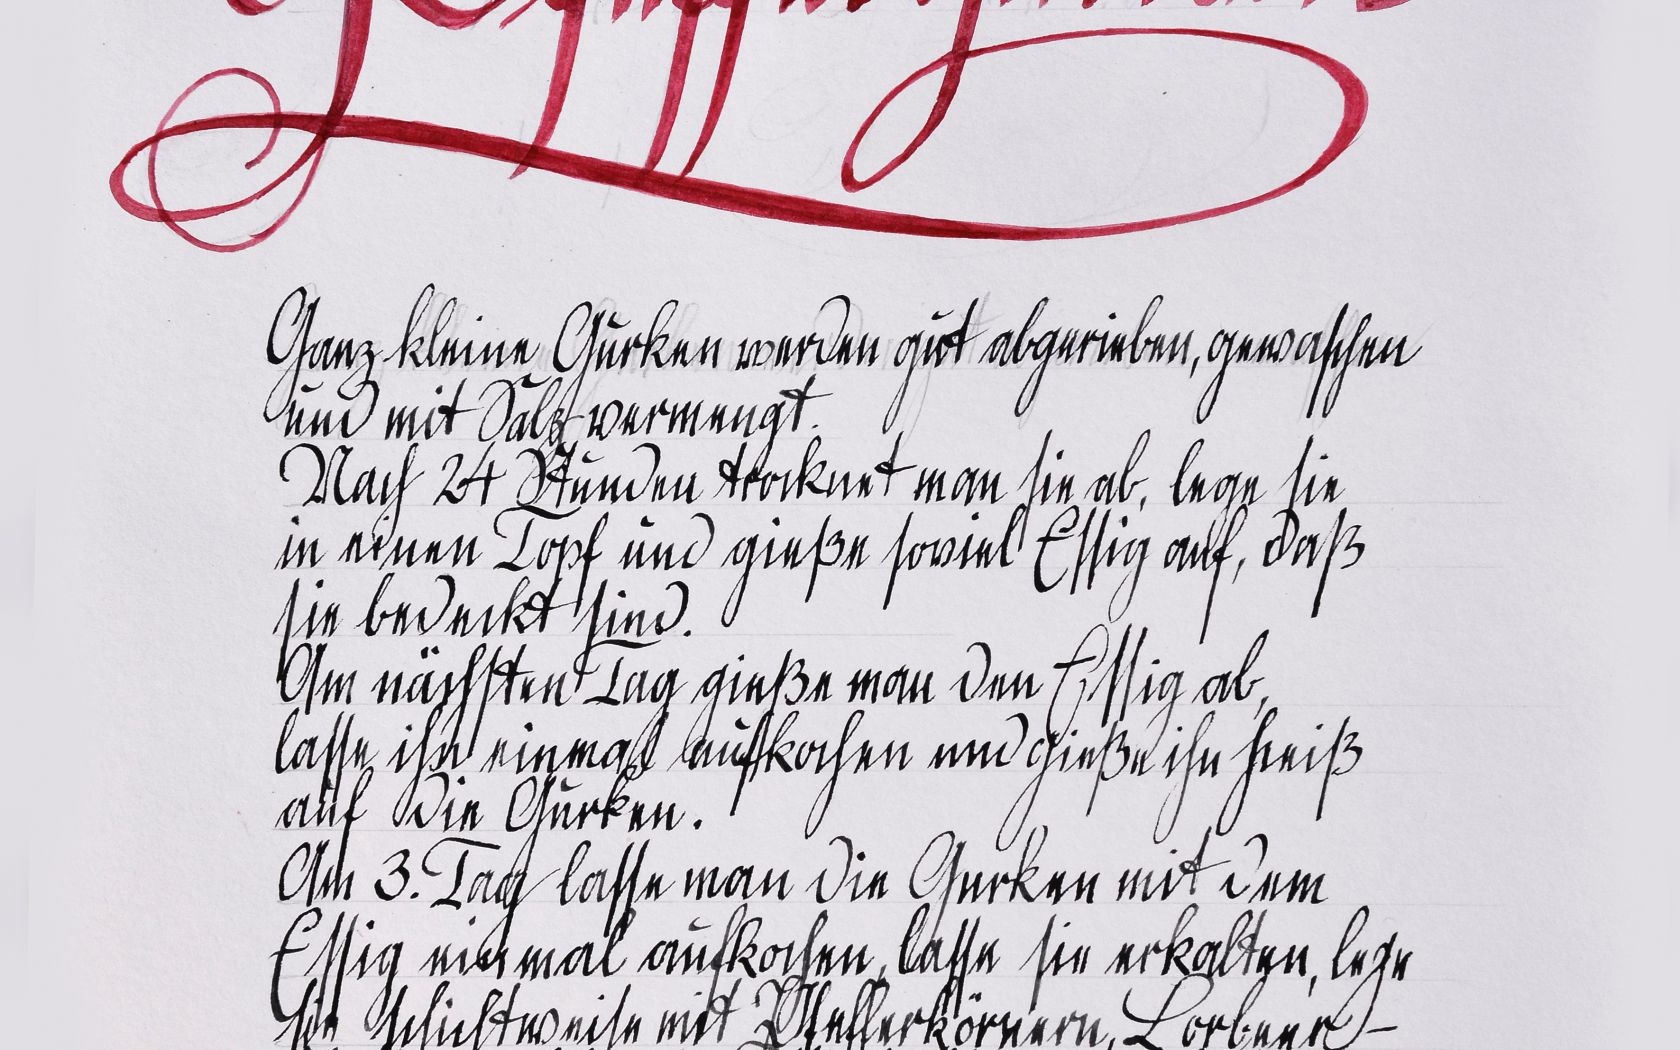 Ganz kleine Gurken werden gut abgerieben, gewaschen
und mit Salz vermengt.
Nach 24 Stunden trocknet man sie ab, lege sie
in einen Topf und gieße soviel Essig auf, daß
sie bedeckt sind.
Am nächsten Tag gieße man den Essig ab,
lasse ihn einmal aufkochen und gieße ihn heiß
auf die Gurken.
Am 3. Tag lasse man die Gurken mit dem
Essig einmal aufkochen, lasse sie erkalten, lege
sie schichtweise mit Pfefferkörnern, Lorbeer-